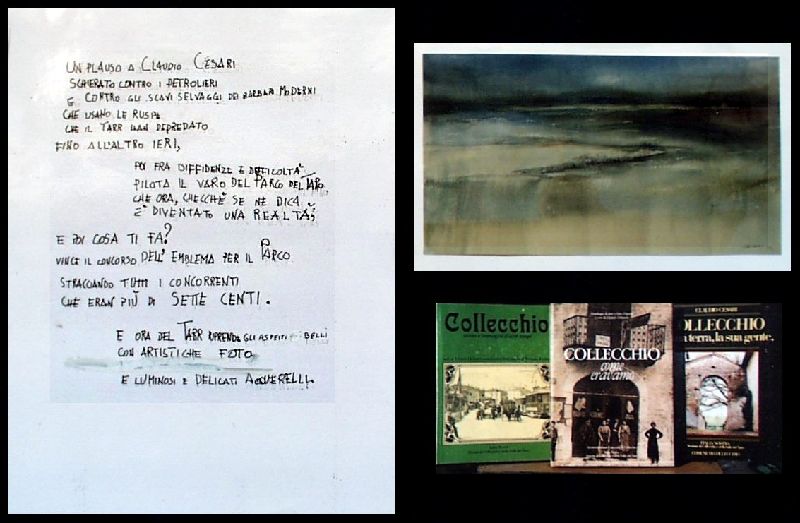 UN PLAUSO A CLAUDIO CESARI
SCHIERATO CONTRO I PETROLIERI
E CONTRO GLI SCAVI SELVAGGI DEI BARBARI MODERNI
CHE USANO LE RUSPE
CHE IL TARR HAN DEPREDATO
FINO ALL'ALTRO IERI,
POI FRA DIFFIDENZE E DIFFICOLTA'
PILOTA IL VARO DEL PARCO DEL TARO
CHE ORA, CHECCHÈ SE NE DICA
È DIVENTATO UNA REALTÀ
E POI COSA TI FA?
VINCE IL CONCORSO DELL'EMBLEMA PER IL PARCO
STRACCIANDO TUTTI I CONCORRENTI
CHE ERAN PIÙ DI SETTE CENTI.
E ORA DEL TARR RIPRENDE GLI ASPETTI BELLI
CON ARTISTICHE FOTO
E LUMINOSI E DELICATI ACQUERELLI.
Collecchio
COLLECCHIO
come
eravamo
CLAUDIO CESARI
OLLECCHIO
a terra, la sua gente,